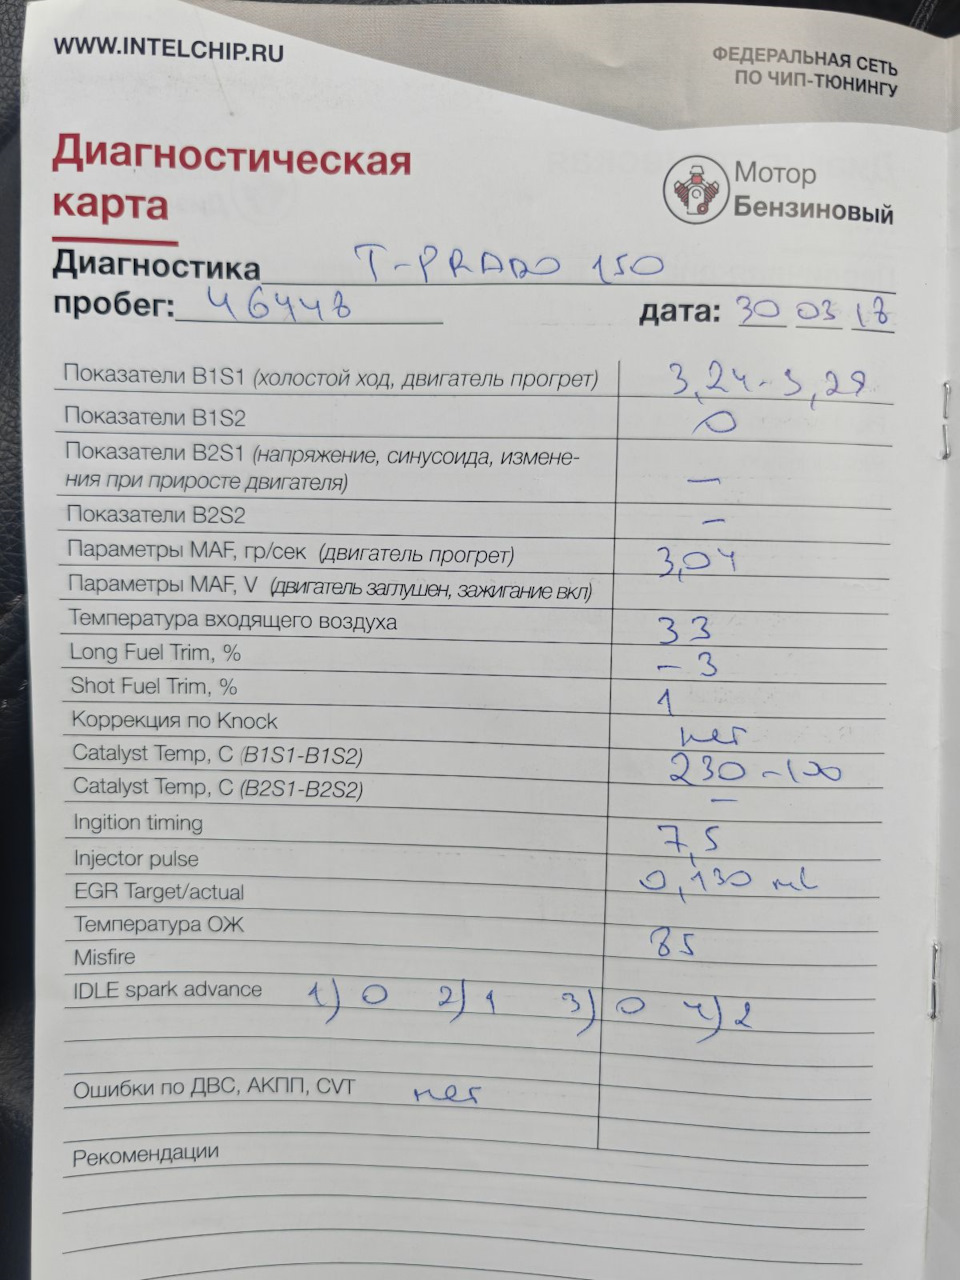 WWW.INTELCHIP.RU
ФЕДЕРАЛЬНАЯ СЕТЬ
ПО ЧИП-ТЮНИНГУ
Диагностическая
карта
Мотор
Бензиновый
Диагностика T-PRADO 150
пробег: 46448 дата: 30 03 18
Показатели B1S1 (холостой ход, двигатель прогрет) 3,24-3,29
Показатели B1S2 0
Показатели B2S1 (напряжение, синусоида, измене-
ния при приросте двигателя) —
Показатели B2S2 —
Параметры MAF, гр/сек (двигатель прогрет) 3,04
Параметры MAF, V (двигатель заглушен, зажигание вкл)
Температура входящего воздуха 33
Long Fuel Trim, % -3
Shot Fuel Trim, % 1
Коррекция по Knock нет
Catalyst Temp, C (B1S1-B1S2) 230-100
Catalyst Temp, C (B2S1-B2S2) —
Ingition timing 7,5
Injector pulse 0,130 ml
EGR Target/actual
Температура ОЖ 85
Misfire
IDLE spark advance 1) 0 2) 1 3) 0 4) 2
Ошибки по ДВС, АКПП, CVT нет
Рекомендации